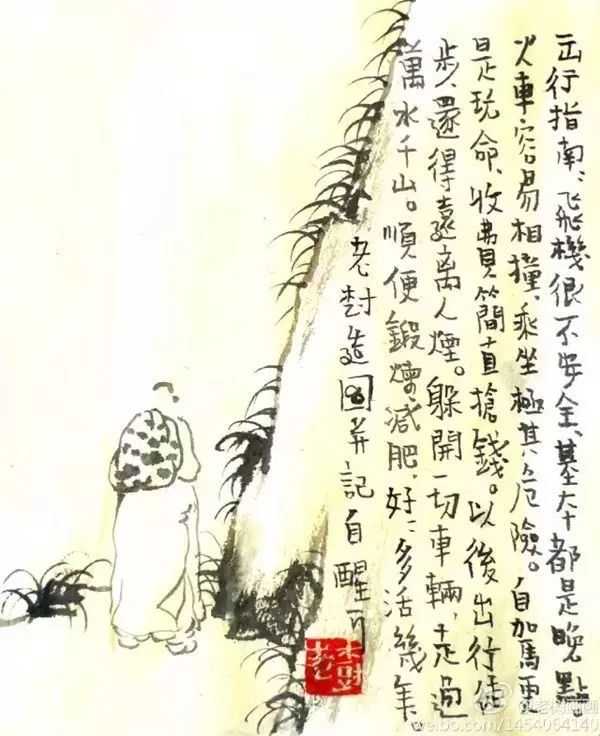 出行指南:飛機很不安全、基本都是晚點。
火車容易相撞、乘坐極其危險。自駕更
是玩命、收費簡直搶錢。以後出行徒
步、還得遠離人煙。躲開一切車輛,走過
萬水千山。順便鍛煉減肥,好:多活幾年。
老樹造圖并記自醒可
老樹
@老树画画
weibo.com/1454064140